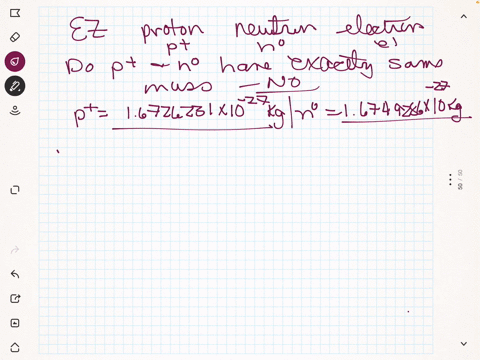 EZ proton neutron electron
p+ n° e'
Do p+ - n° have exactly same
mass - No
p+ = 1.6726231 x 10^-27 kg | n° = 1.6749286 x 10^-27 kg
50 / 50